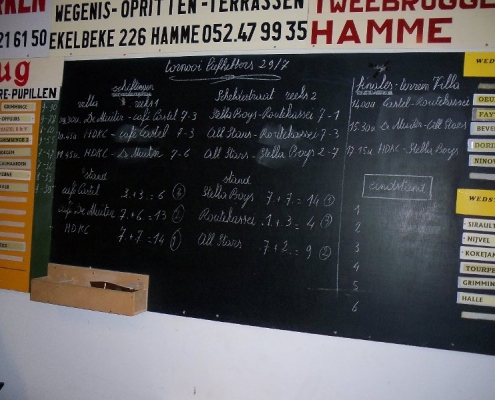 RKEN
WEGENIS-OPRITTEN-TERRASSEN
TWEEBRUGGE
21 61 50
EKELBEKE 226 HAMME 052.47 99 35
HAMME
ug
RE-PUPILLEN
tornooi liefhebbers 29/7
schiftingen
reeks 1
Scheldestraat reeks 2
finales - terrein Zilla
De Mierter - café Castel 7-3
Stella Boys - Routekassei 7-1
14.00u Castel - Routekassei
HDKC - café Castel 7-3
All Stars - Routekassei 7-3
15.30u De Mierter - All Stars
HDKC - De Mierter 7-6
All Stars - Stella Boys 2-7
17.15u HDKC - Stella Boys
stand
stand
eindstand
café Castel 3+3=6 (3)
Stella Boys 7+7=14 (1)
café De Mierter 7+6=13 (2)
Routekassei 1+3=4 (3)
HDKC 7+7=14 (1)
All Stars 7+2=9 (2)
1
2
3
4
5
6
WEDS
OUD
FAY
BEVE
NINO
WEDST
-SIRAULT
-NIJVEL
KOKEJAN
TOURPE
GRIMMIN
HALLE